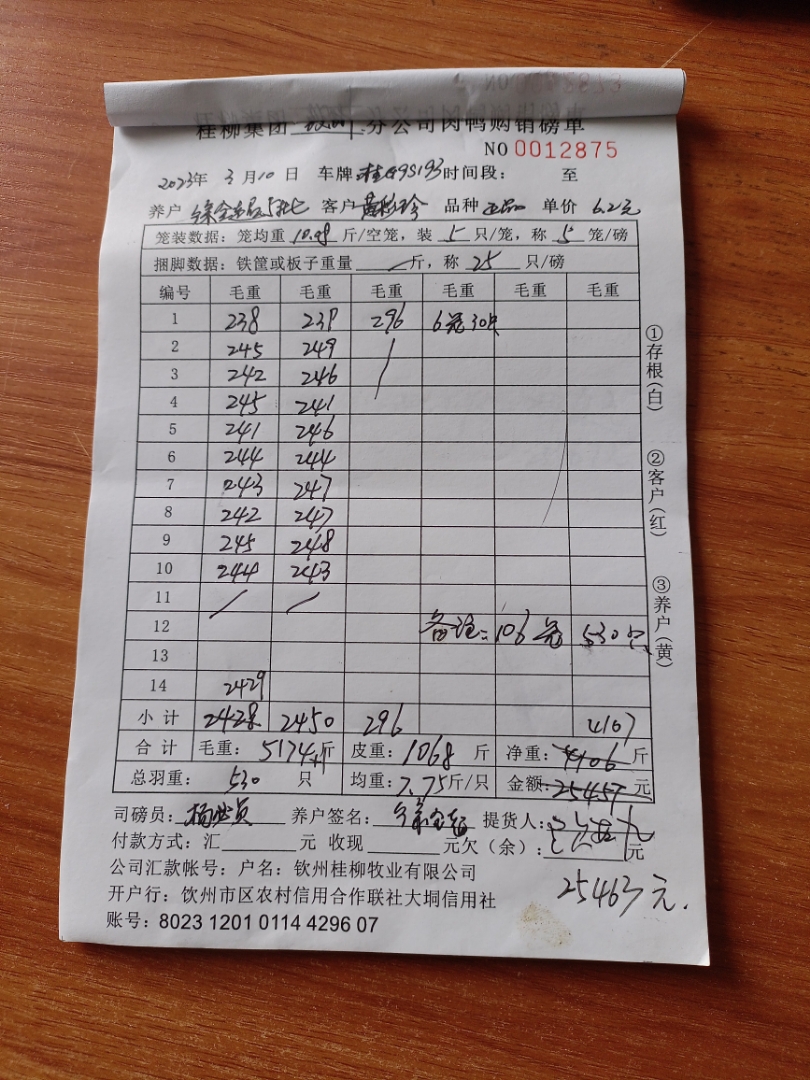 桂柳集团 分公司肉鸭购销磅单
NO 0012875
2023年 3月10日 车牌 时间段: 至
养户 客户 品种 正品 单价 6.2元
笼装数据: 笼均重 10.08 斤/空笼, 装 5 只/笼, 称 5 笼/磅
捆脚数据: 铁筐或板子重量 / 斤, 称 25 只/磅
编号 毛重 毛重 毛重 毛重 毛重 毛重
1 238 239 296 6笼30只
2 245 249
3 242 246
4 245 241
5 241 246
6 244 244
7 243 247
8 242 247
9 245 248
10 244 243
11
12 备注: 106笼 530只
13
14 2429
小计 2428 2450 296 4107
合计 毛重: 5174斤 皮重: 1068 斤 净重: 4106 斤
总羽重: 530 只 均重: 7.75斤/只 金额: 25457元
司磅员: 养户签名: 提货人:
付款方式: 汇 元 收现 元欠(余): 元
公司汇款帐号: 户名: 钦州桂柳牧业有限公司
25463元.
开户行: 钦州市区农村信用合作联社大垌信用社
账号: 8023 1201 0114 4296 07
①存根(白) ②客户(红) ③养户(黄)